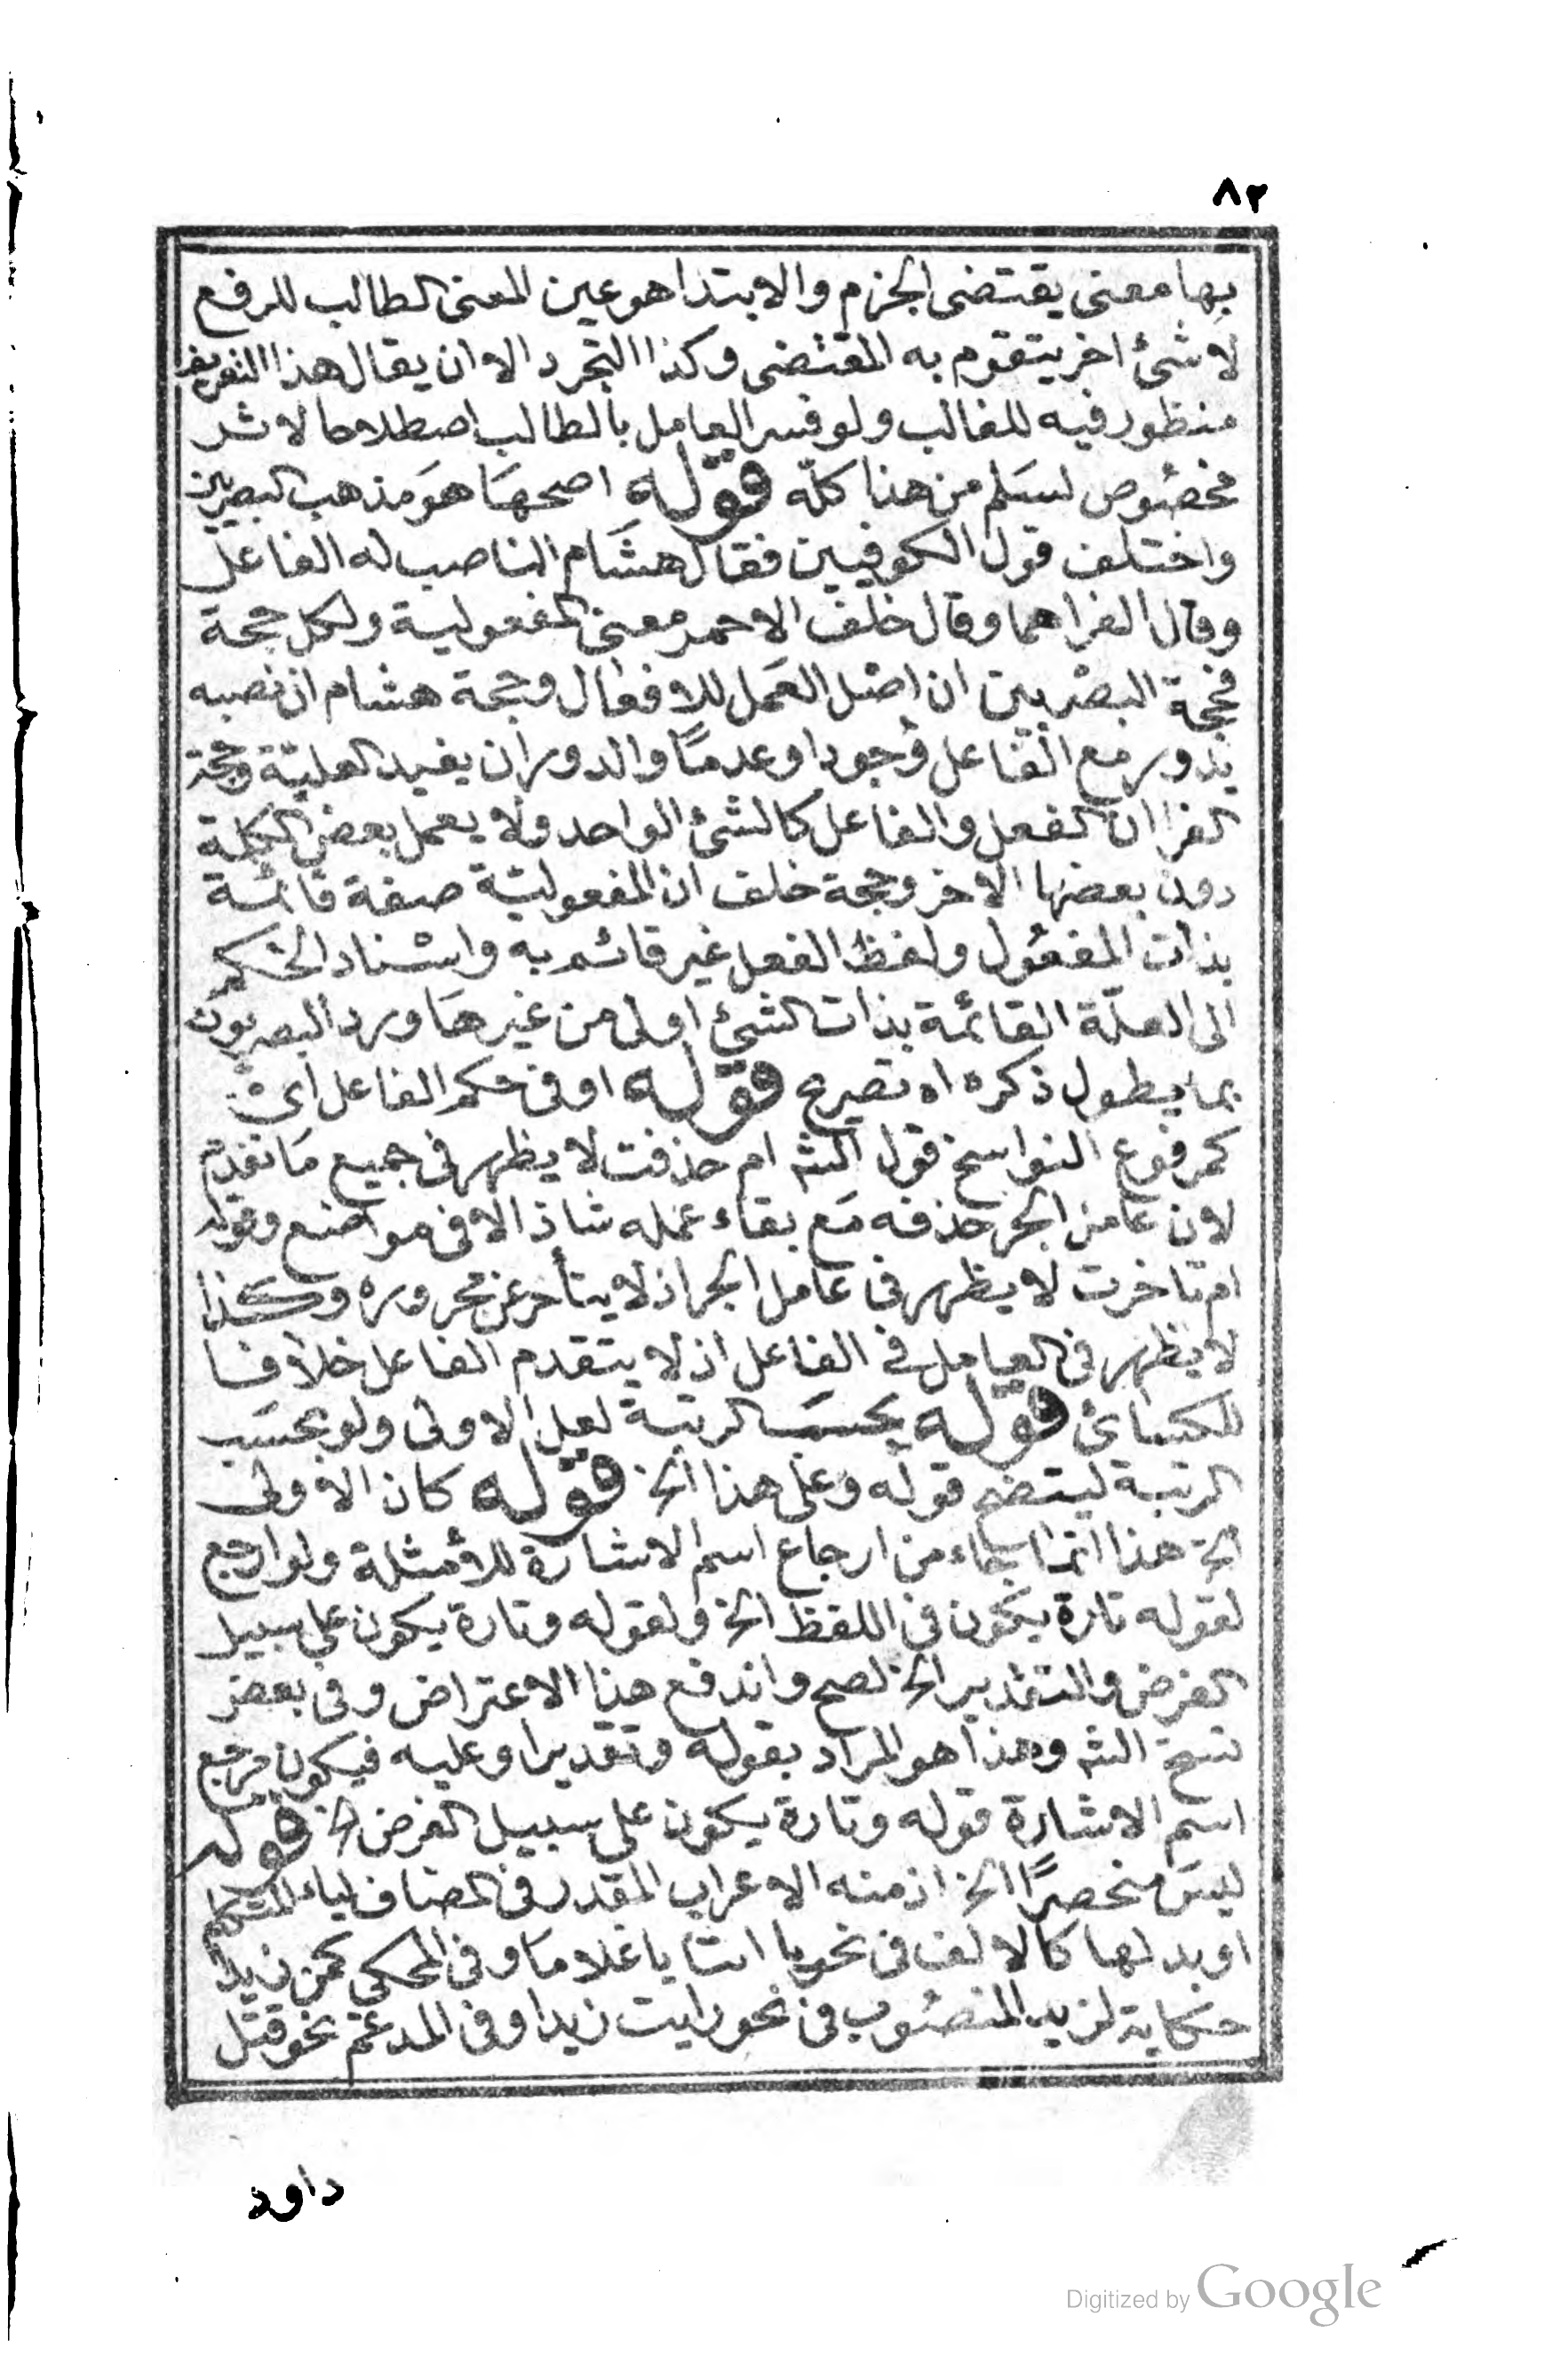 ٨٢
بها معنى يقتضى الجزم والابتدا هو عين المعنى الطالب للرفع
لا شئ اخر يتقوم به المقتضى وكذا التجرد الا ان يقال هذا التعريف
منظور فيه للغالب ولو فسر العامل بالطالب اصطلاحا لاثر
مخصوص لسلم من هذا كله قوله اصحها هو مذهب البصريين
واختلف قول الكوفيين فقال هشام الناصب له الفاعل
وقال الفرا هما وقال خلف الاحمر معنى المفعولية ولكل حجة
فحجة البصريين ان اصل العمل للافعال وحجة هشام ان نصبه
يدور مع الفاعل وجودا وعدما والدوران يفيد العلية وحجة
الفرا ان الفعل والفاعل كالشئ الواحد ولا يعمل بعض الكلمة
دون بعضها الاخر وحجة خلف ان المفعولية صفة قائمة
بذات المفعول ولفظ الفعل غير قائم به واسناد الحكم
الى العلة القائمة بذات الشئ اولى من غيرها ورد البصريون
بما يطول ذكره اه تصريح قوله او فى حكم الفاعل اى
كمرفوع النواسخ قول الشه ام حذفت لا يظهر فى جميع ما تقدم
لان عامل الجر حذفه مع بقاء عمله شاذ الا فى مواضع وقوله
ام تاخرت لا يظهر فى عامل الجر اذ لا يتأخر عن مجروره وكذا
لا يظهر فى العامل فى الفاعل اذ لا يتقدم الفاعل خلافا
للكسائى قوله بحسب الرتبة لعل الاولى ولو بحسب
الرتبة ليتضح قوله وعلى هذا الخ قوله كان الاولى
الخ هذا انما جاء من ارجاع اسم الاشارة للأمثلة ولو ارجع
لقوله تارة يكون فى اللفظ الخ ولقوله وتارة يكون على سبيل
الفرض والتقدير الخ لصح واندفع هذا الاعتراض وفى بعض
نسخ الشه وهذا هو المراد بقوله وتقديرا وعليه فيكون مرجع
اسم الاشارة قوله وتارة يكون على سبيل الفرض الخ قوله
ليس منحصرًا الخ اذ منه الاعراب المقدر فى المضاف لياء المتكلم
او بدلها كالالف فى نحو يا ابتا يا غلاما وفى المحكى كمن زيدا
حكاية لزيد المنصوب فى نحو رايت زيدا وفى المدغم نحو قتل
داود
Digitized by Google